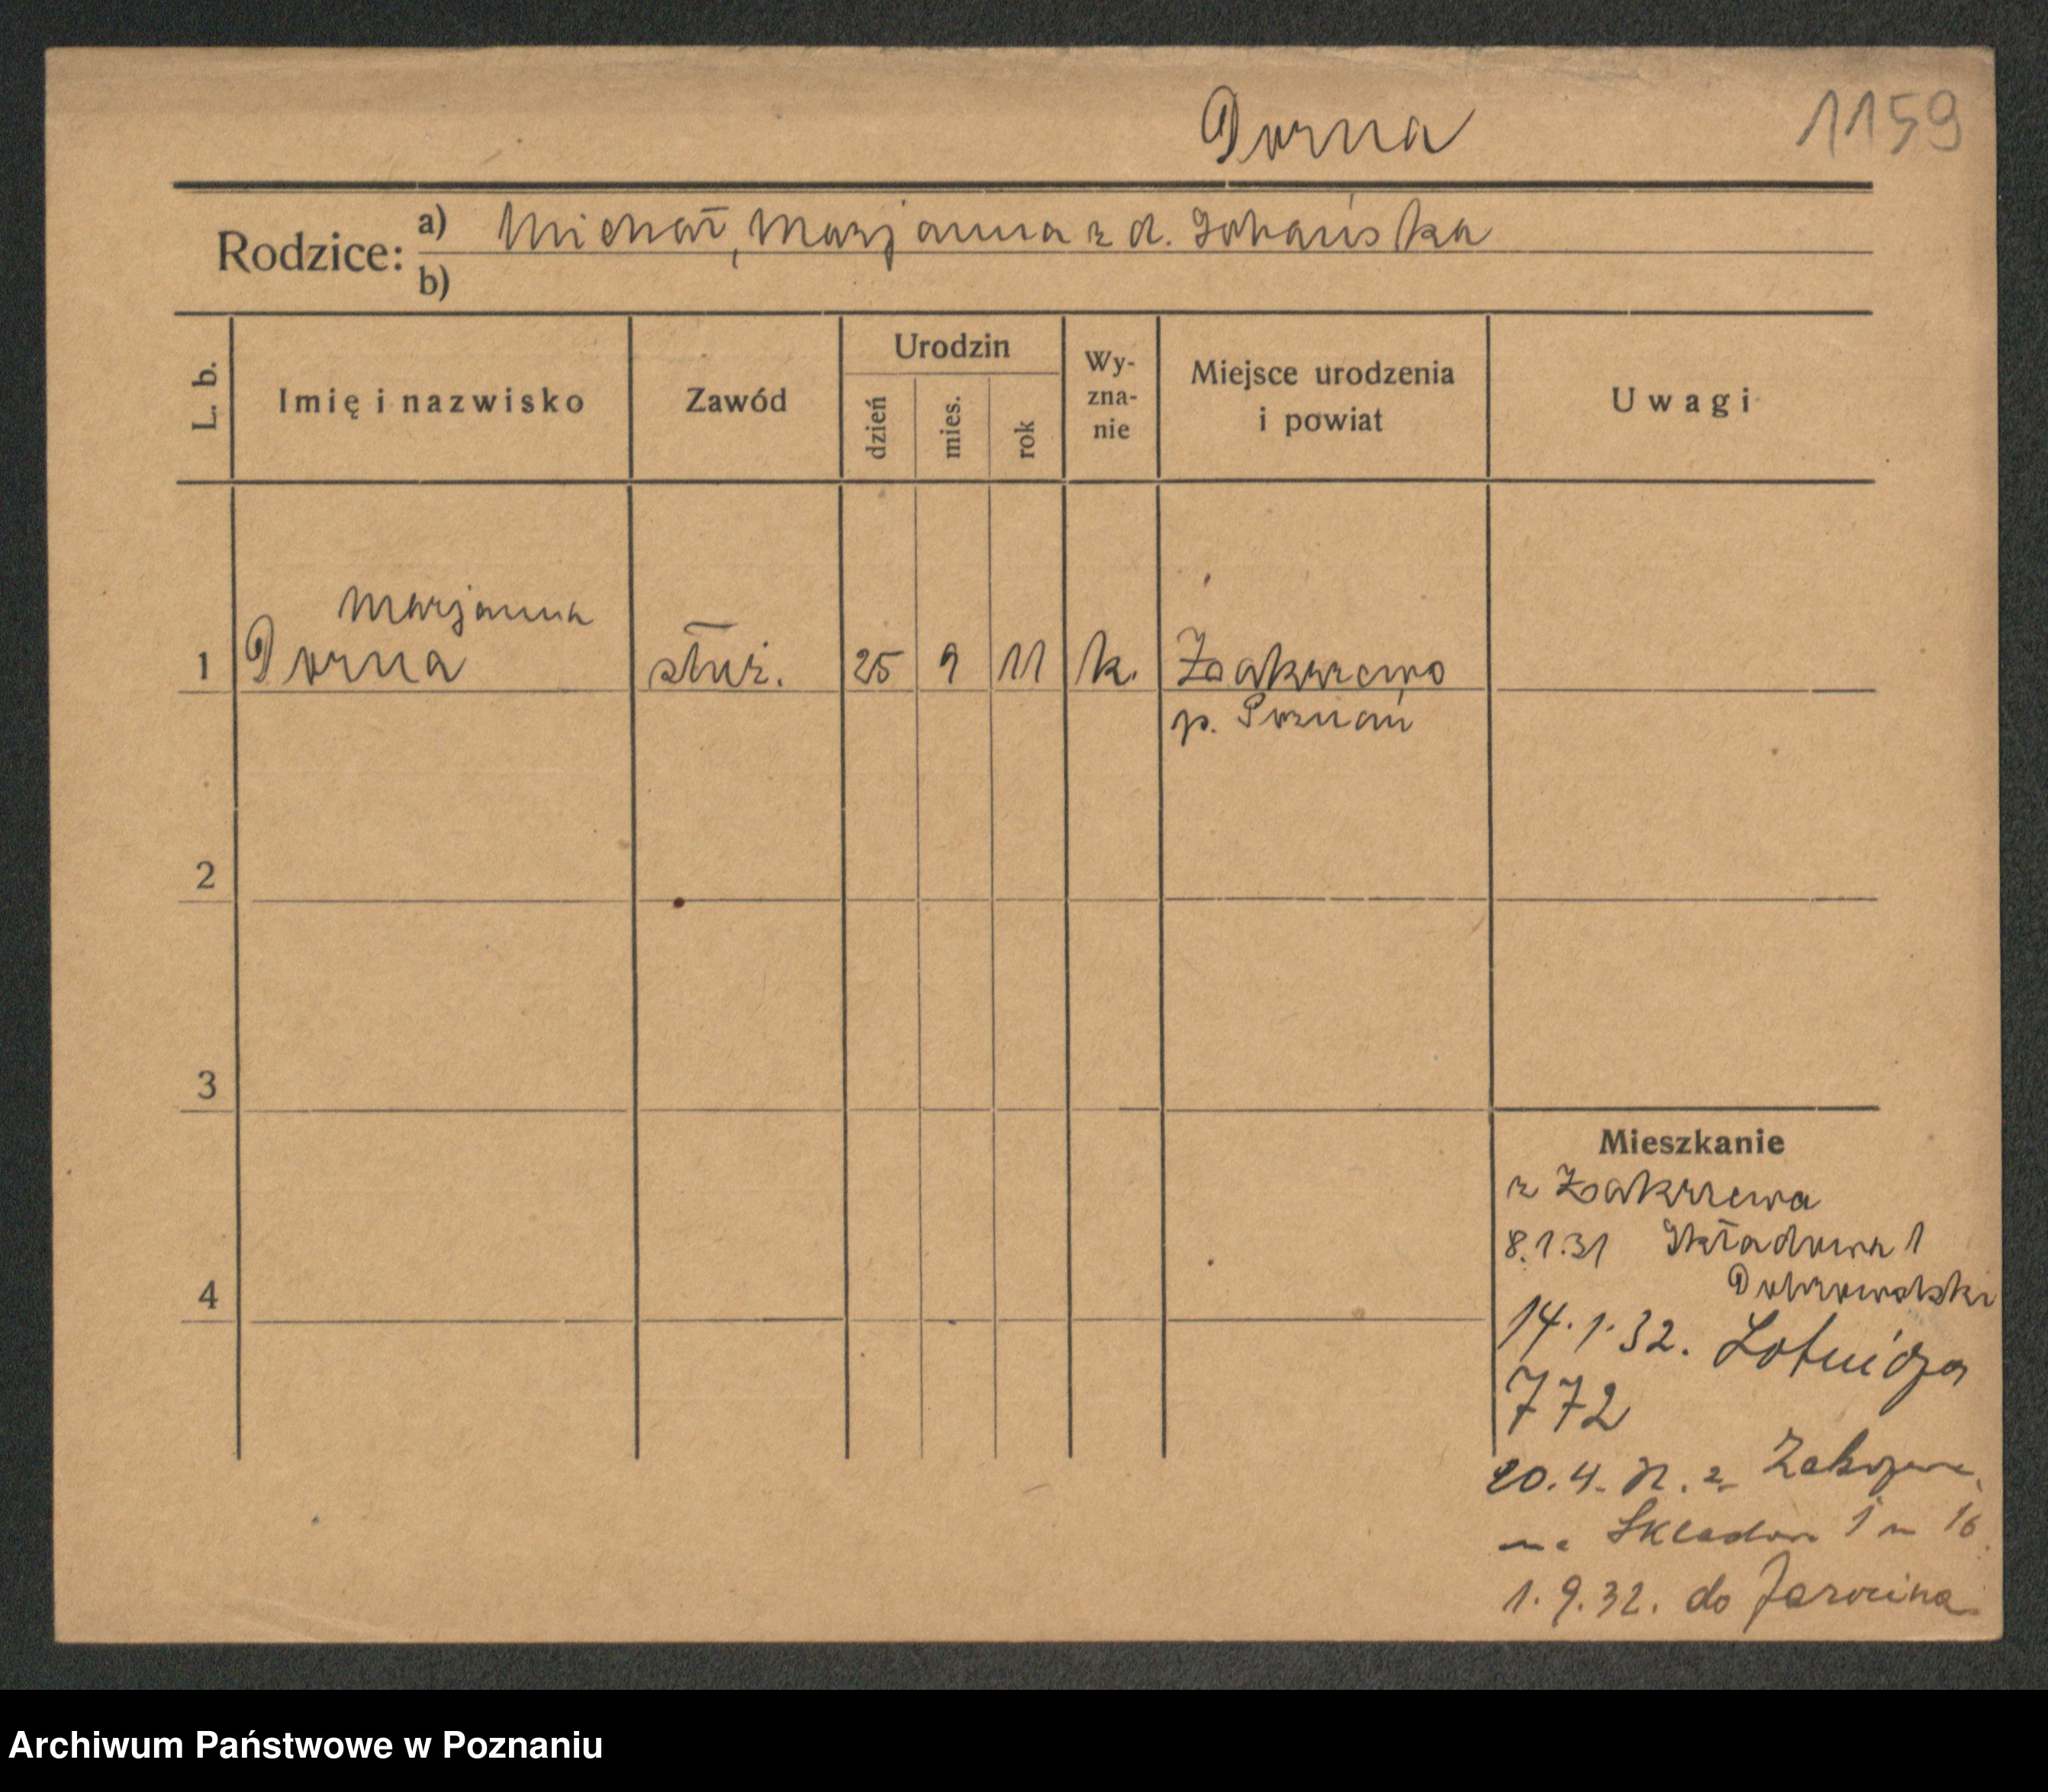 Dorna
1159
Rodzice: a) Michał, Marjanna z d.
b)
L. b.
Imię i nazwisko
Zawód
Urodzin
dzień
mies.
rok
Wy-
zna-
nie
Miejsce urodzenia
i powiat
Uwagi
Marjanna
1 Dorna służ. 25 9 11 k. Zakrzewo
p. Poznań
2
3
4
Mieszkanie
z Zakrzewa
8.1.31 Składowa 1
Dobrowolski
14.1.32. Lotnicza
772
20.4. z
Składow 1 m 16
1.9.32. do Jarocina
Archiwum Państwowe w Poznaniu